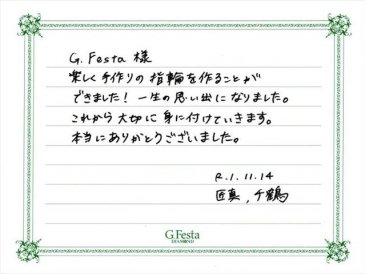 G. Festa 様
楽しく手作りの指輪を作ることが
できました！一生の思い出になりました。
これから大切に身に付けていきます。
本当にありがとうございました。
R.1.11.14
匠真、千鶴
G.Festa
DIAMOND